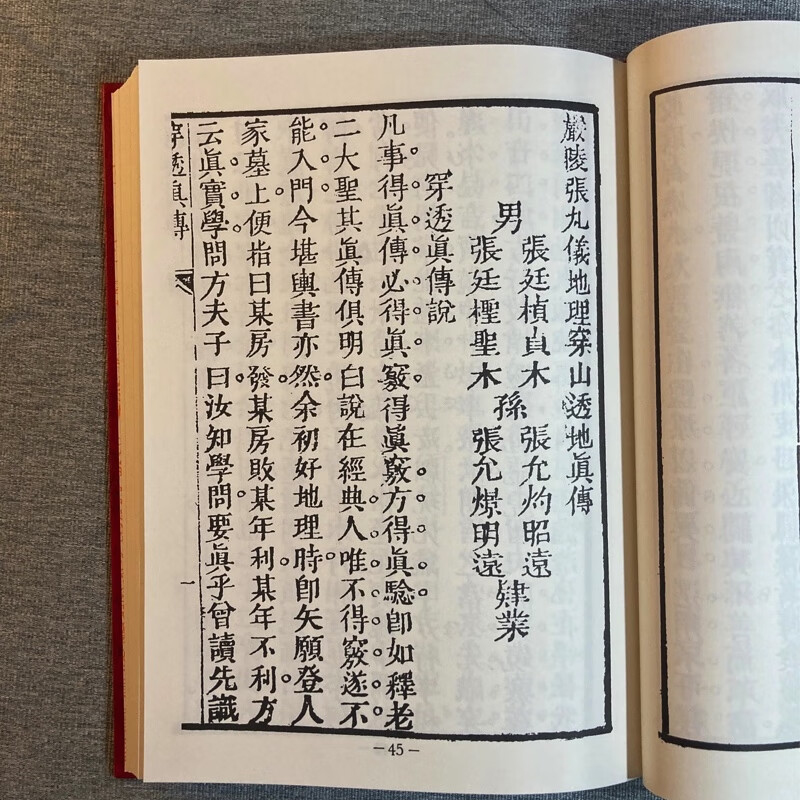 嚴陵張九儀地理穿山透地眞傳
男
張廷楨貞木
張廷檉聖木
孫
張允灼昭遠
張允煜明遠
肄業
穿透眞傳說
凡事得眞傳必得眞竅得眞竅方得眞驗卽如釋老
二大聖其眞傳俱明白說在經典人唯不得竅遂不
能入門今堪輿書亦然余初好地理時卽矢願登人
家墓上便指曰某房發某房敗某年利某年不利方
云眞實學問方夫子曰汝知學問要眞乎曾讀先識
穿透眞傳
一
—45—